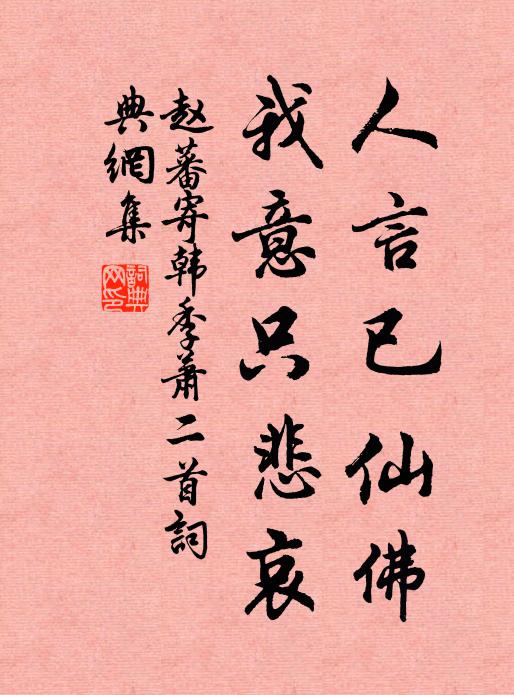 人言已仙佛
我意只悲哀
赵蕃寄韩季萧二首詞
典網集
詞典
网印